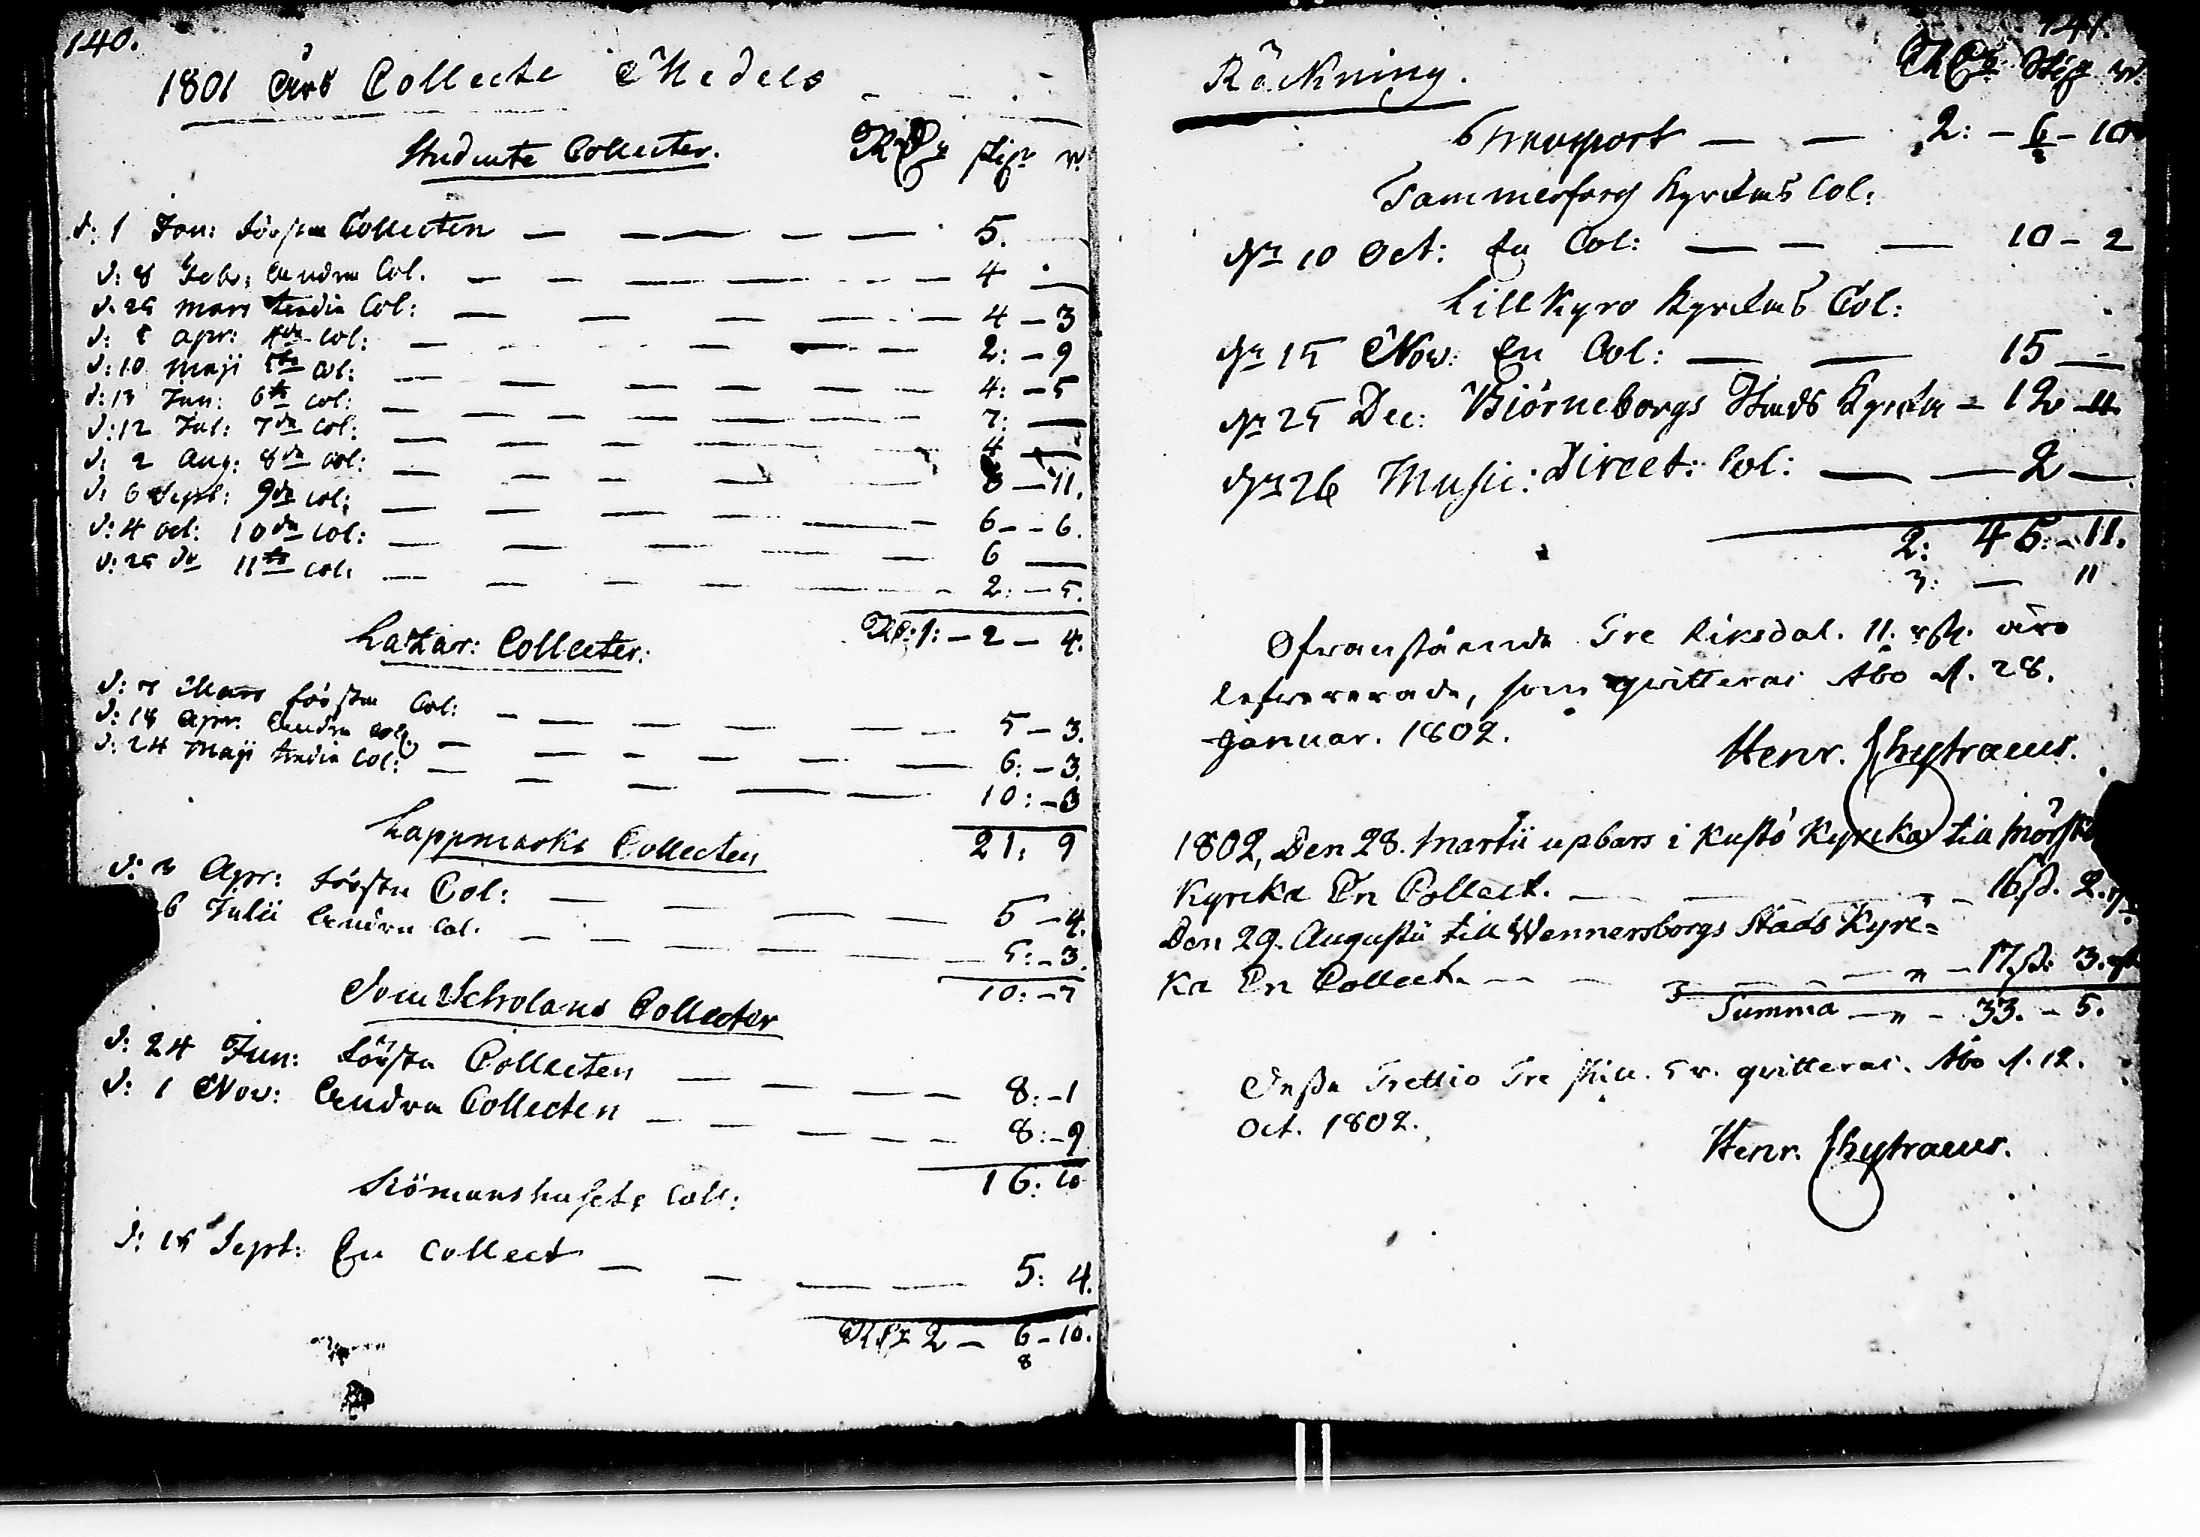 140.
1801 Års Collecte Medels
Studente Collecter. RDr skigr rr
d: 1 Jan: första Collecten 5.
d: 8 Feb: Andra Col. 4
d. 25 Mars tredie Col: 4 - 3
d: 5 Apr: 4de Col: 2: - 9
d: 10 Maji 5te Col: 4: - 5
d: 13 Jun: 6te Col: 7:
d: 12 Jul: 7de Col: 4
d: 2 Aug: 8de Col: 8 - 11.
d: 6 Sept: 9de Col: 6 - - 6.
d: 4 Oct: 10de Col: 6
d: 25 do 11te Col: 2: - 5.
Rd: 1: - 2 - 4.
Lazar: Collecter:
d: Mars första Col: 5 - 3.
d: 18 Apr. Andra Col. 6: - 3.
d: 24 Maji tredie Col: 10: - 3
21: 9
Lappmarks Collecten
d: 3 Apr: första Col: 5 - 4.
6 Julii Andra Col. 5: - 3.
10: - 7
Dom Scholans Collecter
d: 24 Jun: första Collecten 8: - 1
d: 1 Nov: Andra Collecten 8: - 9
16: 10
Siömanshusets Coll:
d: 15 Sept: En Collect 5: 4.
2 - 6 - 10.
8
141.
Räckning. RDr Skigr rr.
Transport 2: - 6 - 10
8
Tammerfors Kyrckas Col:
10 Oct: En Col: 10 - 2
Lillkyro Kyrckas Col:
15 Nov: En Col: 15
25 Dec: Biörneborgs Stads Kyrcka - 12 - 11.
26 Music: Direct: Col: 2
2: 45: - 11.
3: - 11
Ofvanstående Tre Riksdal. 11. rst. äro
lefvererade, som qvitterai Åbo d. 28.
Januar. 1802.
Henr. Chytraeus.
1802, Den 28. Martii upbars i Kustö Kyrcka till
Kyrcka En Collect. 16 ß. 2.
Den 29. Augustii till Wennersborgs Stads Kyrc=
ka En Collect. 17 ß: 3.
Summa - " - 33. - 5.
Trettio Tre skill. 5 r. qvitterai. Åbo d. 12.
Oct. 1802.
Henr. Chytraeus.